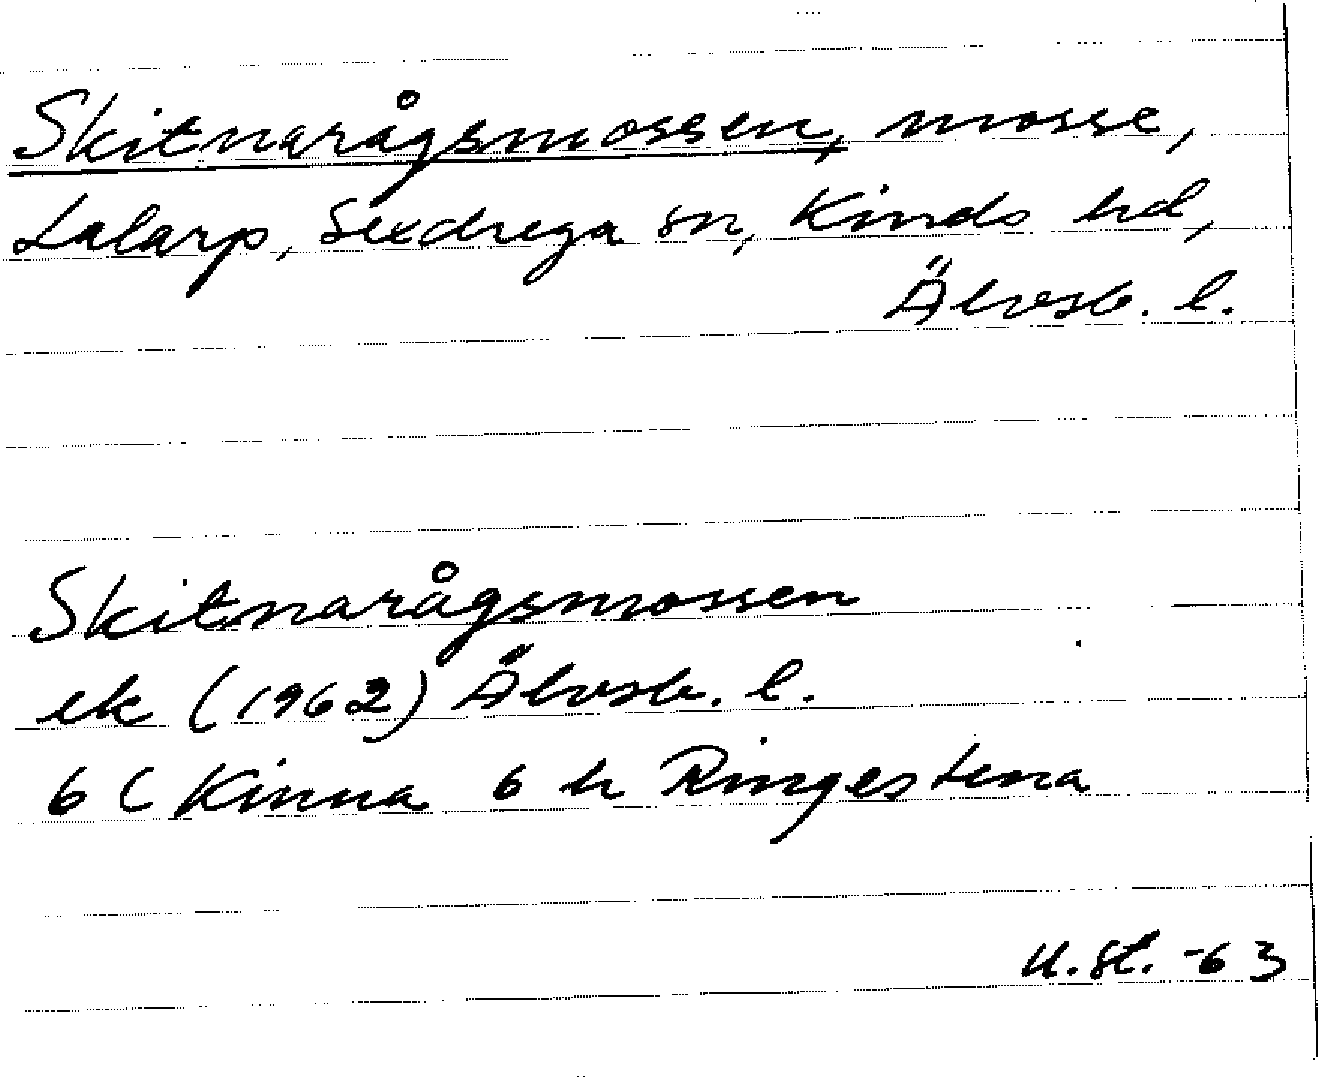 Skitnarågsmossen, mosse,
Lalarp, Sexdrega sn, Kinds hd,
Älvsb. l.
Skitnarågsmossen
ek (1962) Älvsb. l.
6 C Kinna 6 h Ringestena
U. St. -63